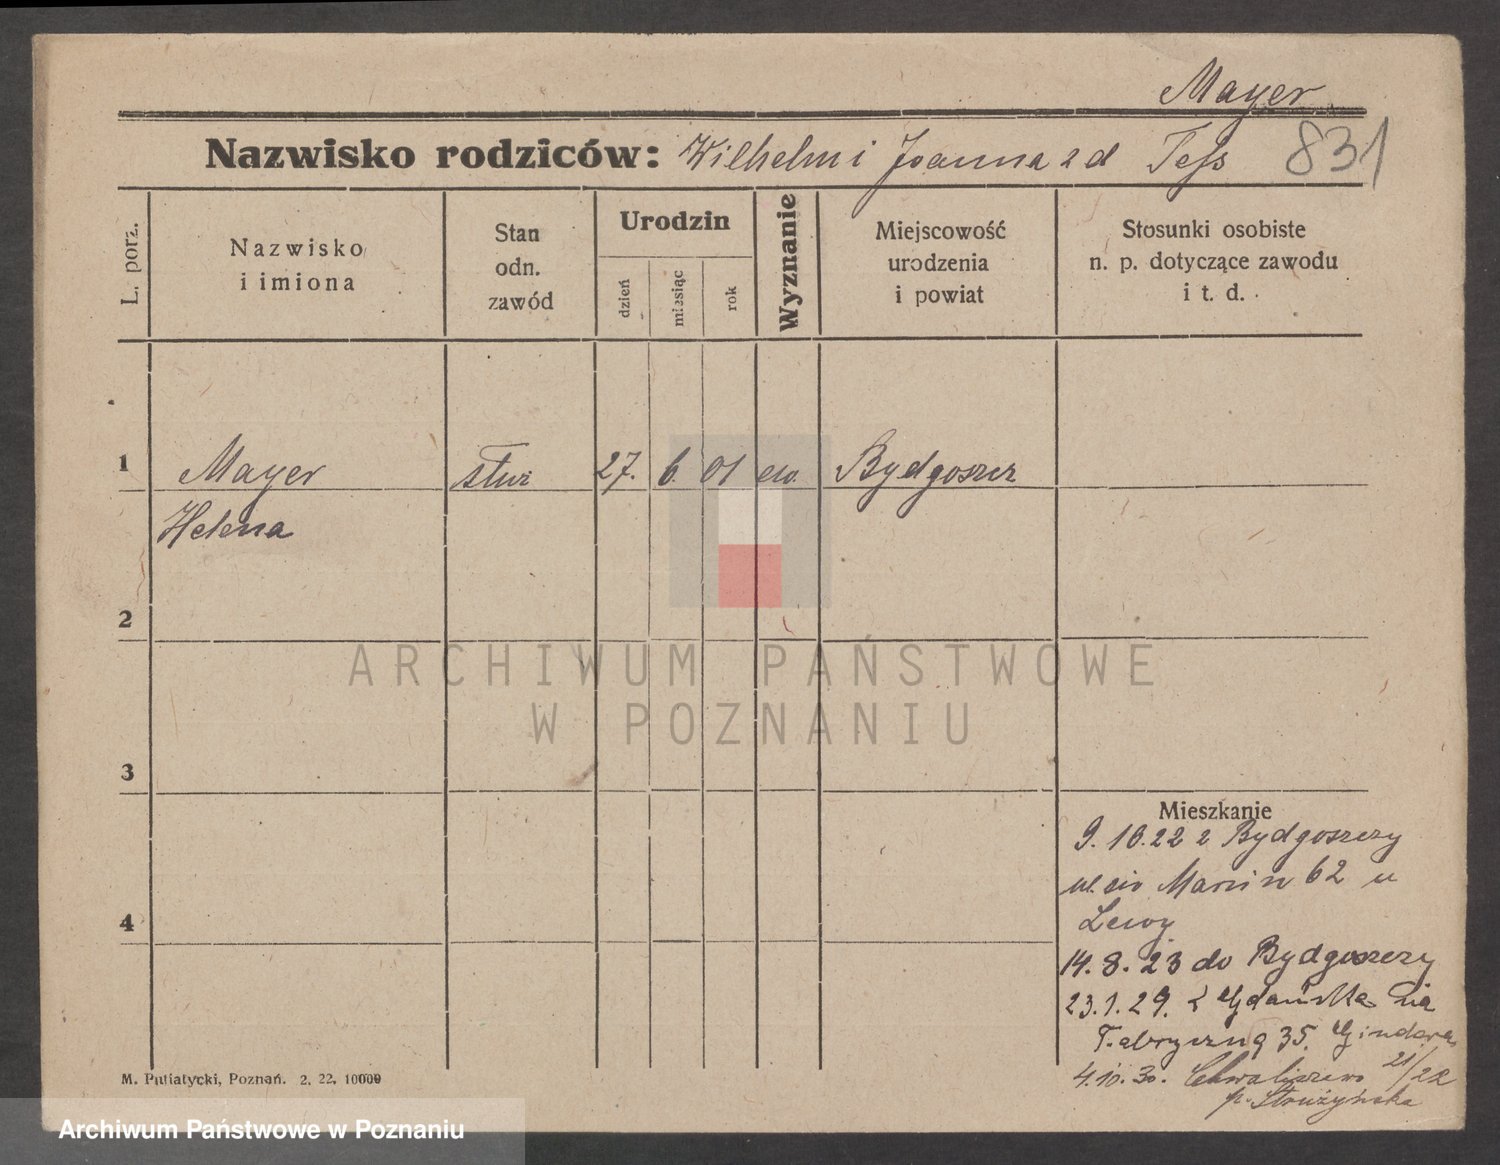 Mayer
Nazwisko rodziców: Wilhelm i Joanna z d Tess 831
L. porz.
Nazwisko
i imiona
Stan
odn.
zawód
Urodzin
dzień
miesiąc
rok
Wyznanie
Miejscowość
urodzenia
i powiat
Stosunki osobiste
n. p. dotyczące zawodu
i t. d.
1 Mayer służ 27. 6. 01 ew. Bydgoszcz
Helena
2
ARCHIWUM PAŃSTWOWE
W POZNANIU
3
Mieszkanie
9. 10. 22 z Bydgoszczy
ul. św Marcin 62 u
Lewy
4
14. 8. 23 do Bydgoszczy
23. 1. 29. z Gdańska na
Fabryczną 35.
4. 10. 30. Chwaliszewo 21/22
p. Strużyńska
M. Putiatycki, Poznań. 2. 22. 10000
Archiwum Państwowe w Poznaniu